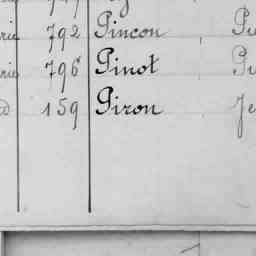 rie 792 Pincon Pi
rie 796 Pinot Pi
159 Piron Je